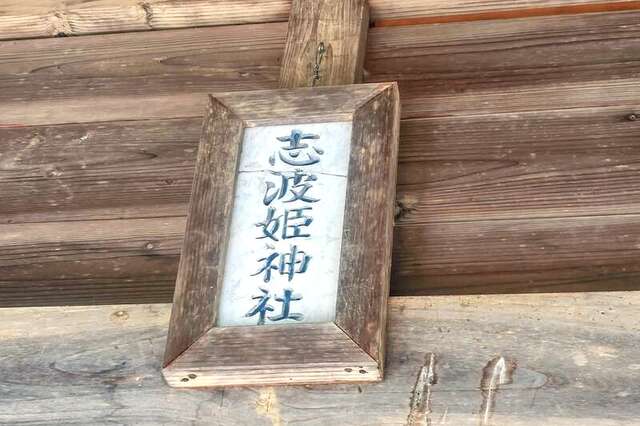 志波姫神社